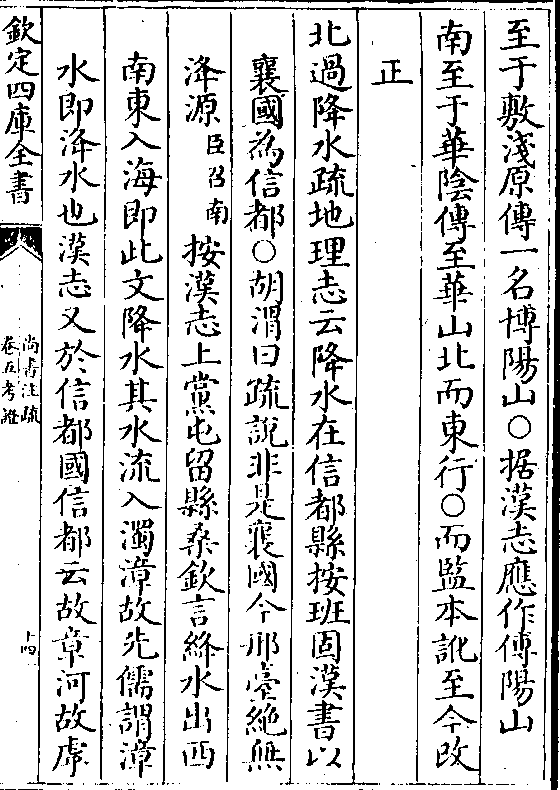 至于敷淺原傳一名博陽山○据漢志應作傅陽山
南至于華陰傳至華山北而東行○而監本訛至今改
正
北過降水疏地理志云降水在信都縣按班固漢書以
襄國為信都○胡渭曰疏說非是襄國今邢臺絶無
洚源臣召南按漢志上黨屯留縣桑欽言絳水出西
南東入海即此文降水其水流入濁漳故先儒謂漳
水即洚水也漢志又於信都國信都云故章河故虖
欽定四庫全書
尚書注疏
卷五考證
十四